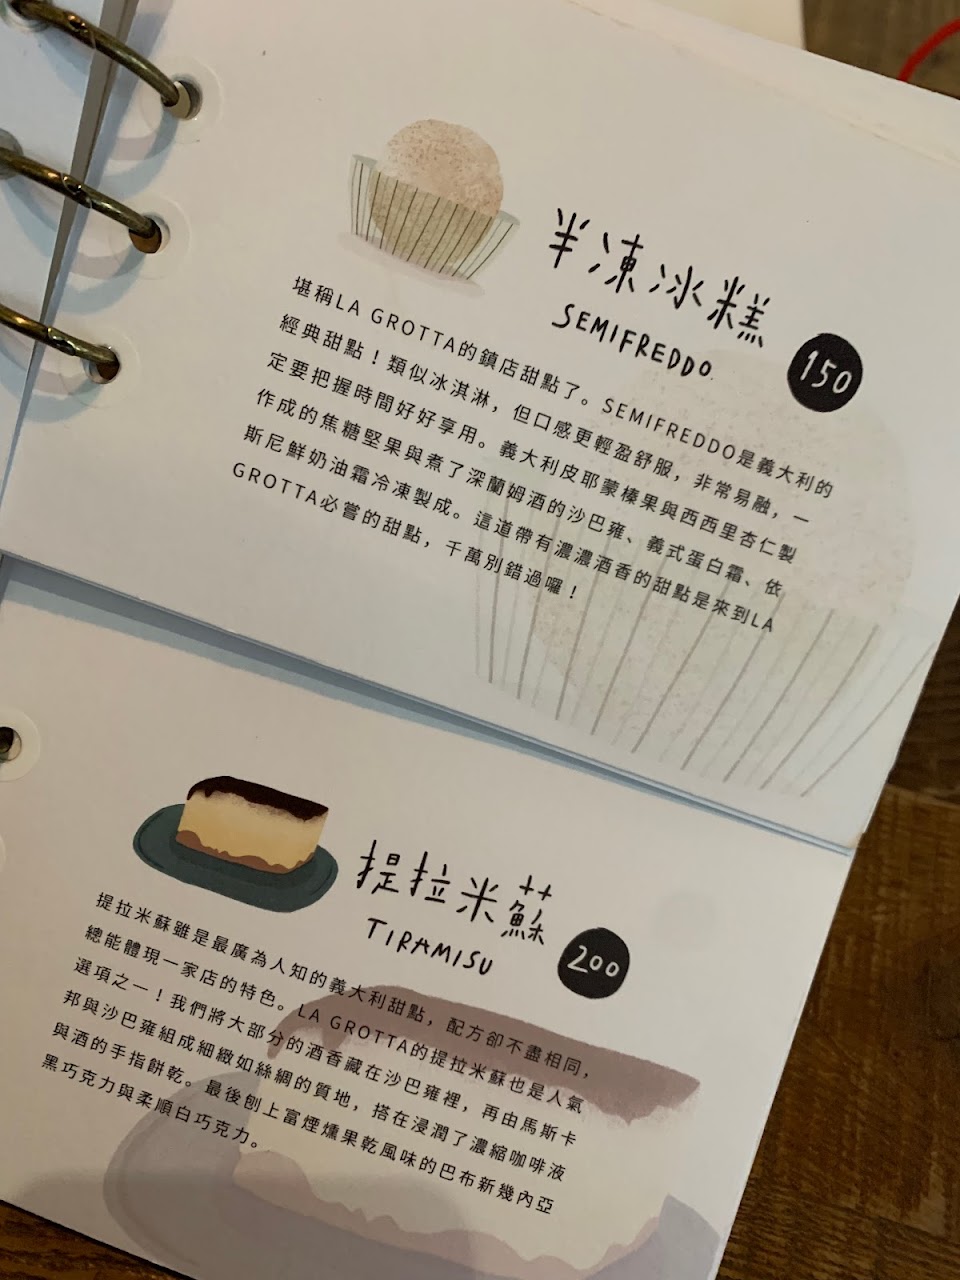 半凍冰糕
SEMIFREDDO
150
堪稱LA GROTTA的鎮店甜點了。SEMIFREDDO是義大利的
經典甜點！類似冰淇淋，但口感更輕盈舒服，非常易融，一
定要把握時間好好享用。義大利皮耶蒙榛果與西西里杏仁製
作成的焦糖堅果與煮了深蘭姆酒的沙巴雍、義式蛋白霜、依
斯尼鮮奶油霜冷凍製成。這道帶有濃濃酒香的甜點是來到LA
GROTTA必嘗的甜點，千萬別錯過囉！
提拉米蘇
TIRAMISU
200
提拉米蘇雖是最廣為人知的義大利甜點，配方卻不盡相同，
總能體現一家店的特色。LA GROTTA的提拉米蘇也是人氣
選項之一！我們將大部分的酒香藏在沙巴雍裡，再由馬斯卡
邦與沙巴雍組成細緻如絲綢的質地，搭在浸潤了濃縮咖啡液
與酒的手指餅乾。最後刨上富煙燻果乾風味的巴布新幾內亞
黑巧克力與柔順白巧克力。